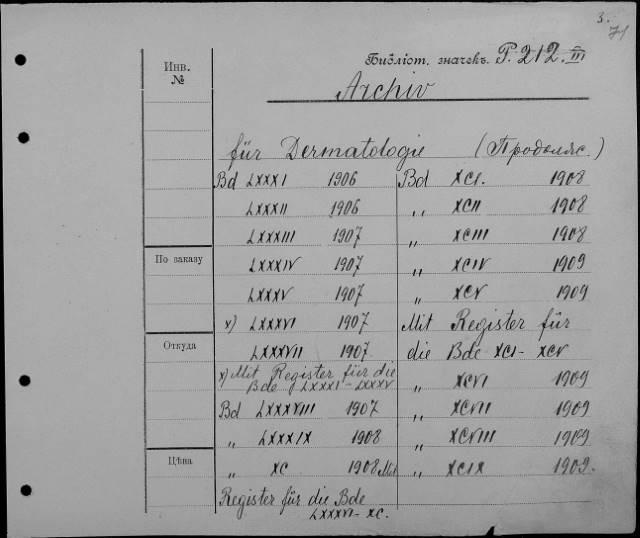 3.
71
Библіот. значекъ. P. 212. III
Инв.
№
Archiv
für Dermatologie (Продолж.)
Bd LXXXI 1906
LXXXII 1906
LXXXIII 1907
LXXXIV 1907
LXXXV 1907
x) LXXXVI 1907
LXXXVII 1907
x) Mit Register für die
Bde LXXXI-LXXXV
Bd LXXXVIII 1907
„ LXXXIX 1908
„ XC 1908 Mit
Register für die Bde
LXXXVI-XC.
Bd XCI. 1908
„ XCII 1908
„ XCIII 1908
„ XCIV 1909
„ XCV 1909
Mit Register für
die Bde XCI-XCV
„ XCVI 1909
„ XCVII 1909
„ XCVIII 1909
„ XCIX 1909.
По заказу
Откуда
Цѣна